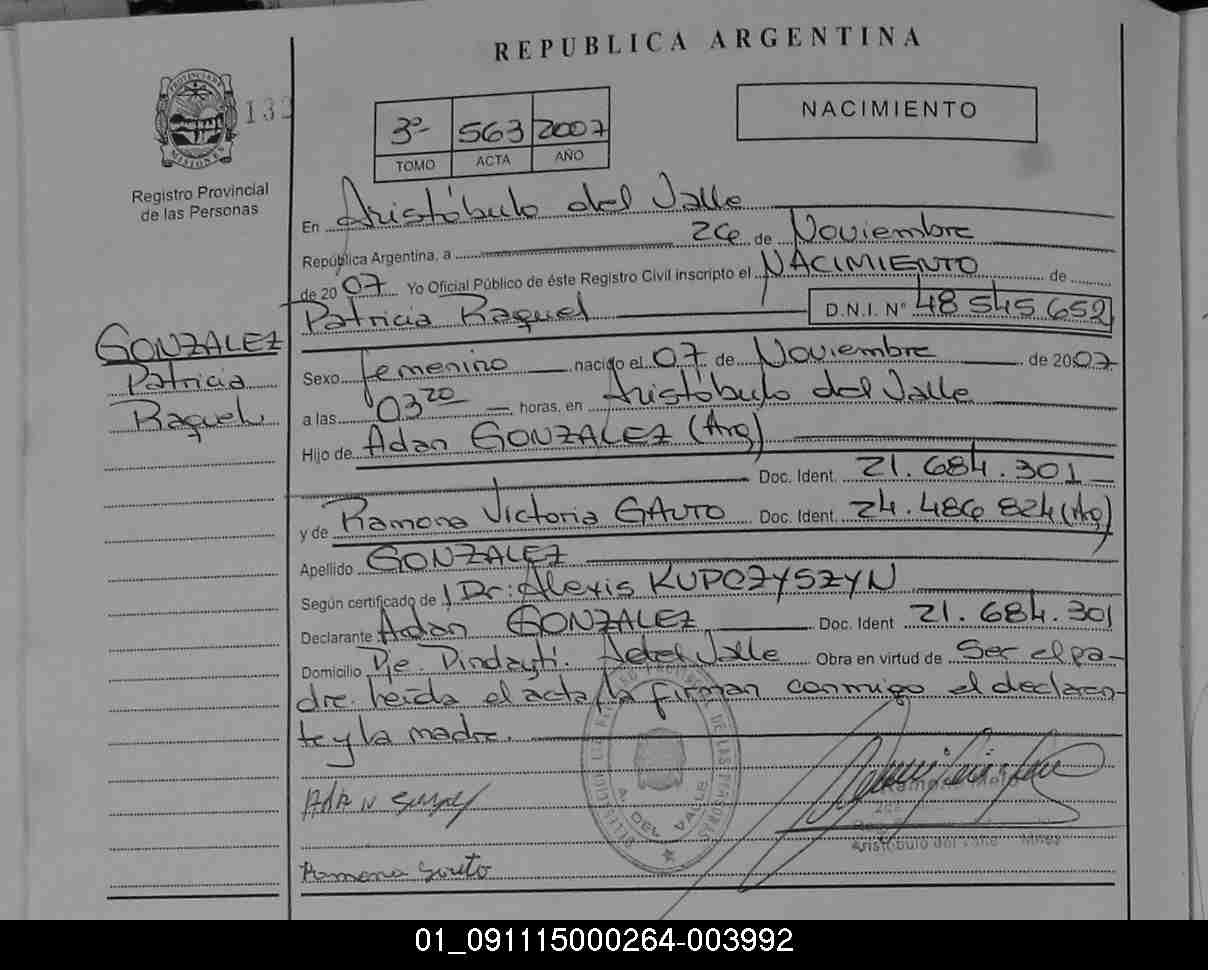 REPUBLICA ARGENTINA
PROVINCIA DE MISIONES
132
Registro Provincial
de las Personas
3º 563 2007
TOMO ACTA AÑO
NACIMIENTO
En Aristóbulo del Valle
República Argentina, a 26 de Noviembre
de 2007. Yo Oficial Público de éste Registro Civil inscripto el NACIMIENTO de
Patricia Raquel D.N.I. Nº 48 545 652
GONZALEZ
Patricia
Raquel
Sexo femenino nacido el 07 de Noviembre de 2007
a las 03 20 horas, en Aristóbulo del Valle
Hijo de Adan GONZALEZ (Arg)
Doc. Ident. 21.684.301
y de Ramona Victoria GAUTO Doc. Ident. 24.486 824 (Arg)
Apellido GONZALEZ
Según certificado de Dr: Alexis KUPCZYSZYN
Declarante Adan GONZALEZ Doc. Ident 21.684.301
Domicilio Pje. Pindaytí. A del Valle Obra en virtud de Ser el pa-
dre. leída el acta la firman conmigo el declaran-
te y la madre.
A. DEL VALLE
Aristóbulo del Valle
Ramona Gauto
01_091115000264-003992